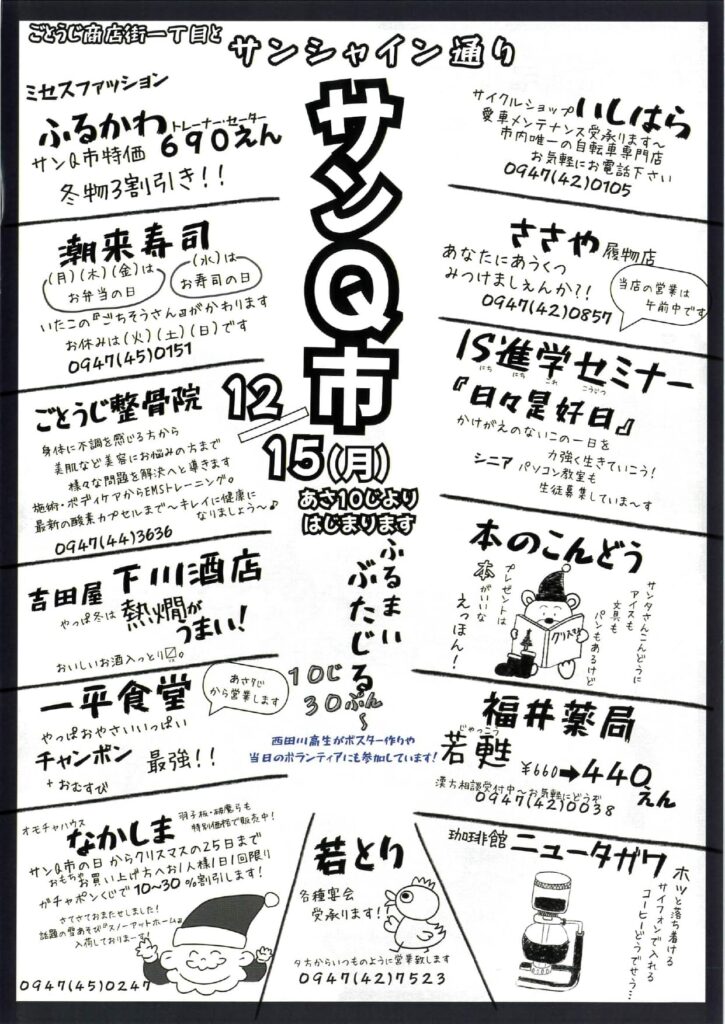 ごとうじ商店街一丁目と
サンシャイン通り
サンQ市
12/15(月)
あさ10じより
はじまります
ふるまい
ぶたじる
10じ
30ぷん
〜
西田川高生がポスター作りや
当日のボランティアにも参加しています!
ミセスファッション
ふるかわ
トレーナー・セーター
サンQ市特価 690えん
冬物3割引き!!
潮来寿司
(月)(木)(金)は
お弁当の日
(水)は
お寿司の日
いたこの『ごちそうさん』がかわります
お休みは(火)(土)(日)です
0947(45)0151
ごとうじ整骨院
身体に不調を感じる方から
美肌など美容にお悩みの方まで
様々な問題を解決へと導きます
施術・ボディケアからEMSトレーニング。
最新の酸素カプセルまで〜キレイに健康に
なりましょう〜♪
0947(44)3636
吉田屋 下川酒店
やっぱ冬は熱燗が
うまい!
おいしいお酒入っとり〼。
一平食堂
あさ9じ
から営業します
やっぱおやさいいっぱい
チャンポン 最強!!
+おむすび
オモチャハウス
なかしま
羽子板・破魔弓も
特別価格で販売中!
サンQ市の日からクリスマスの25日まで
おもちゃお買い上げ方へお1人様1日1回限り
ガチャポンくじで10〜30%割引します!
さてさておまたせしました!
話題の雪あそび『スノーアットホーム』
入荷しておりまーす!
0947(45)0247
サイクルショップ いしはら
愛車メンテナンス受承ります〜
市内唯一の自転車専門店
お気軽にお電話下さい
0947(42)0105
ささや 履物店
あなたにあうくつ
みつけましぇんか?!
0947(42)0857
当店の営業は
午前中です
IS進学セミナー
にち にち これ こうじつ
『日々是好日』
かけがえのないこの一日を
力強く生きていこう!
シニア パソコン教室も
生徒募集していま〜す
本のこんどう
サンタさんこんどうに
アイスも
文具も
パンもあるけど
プレゼントは
本がいいな
えっほん!
クリスマス
福井薬局
じゃっこう
若甦 ¥660➡440えん
漢方相談受付中〜お気軽にどうぞ
0947(42)0038
珈琲館 ニュータガワ
ホッと落ち着ける
サイフォンで入れる
コーヒーどうでせう…
若とり
各種宴会
受承ります!
夕方からいつものように営業致します
0947(42)7523